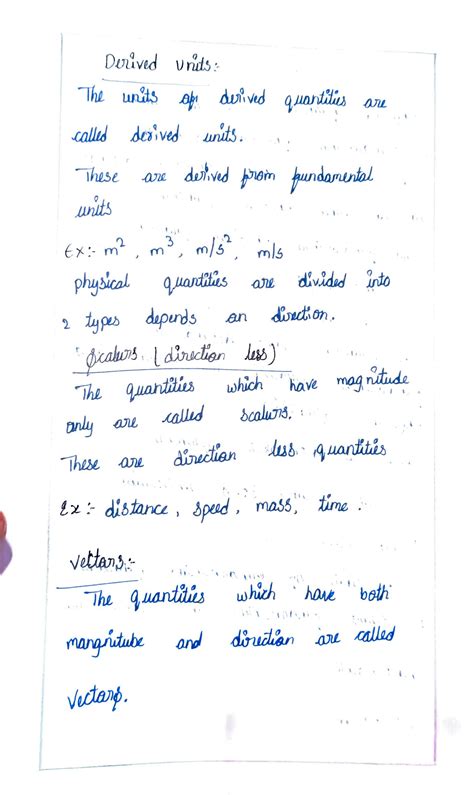 Derived units:-
The units of derived quantities are
called derived units.
These are derived from fundamental
units
Ex:- m², m³, m/s², m/s
physical quantities are divided into
2 types depends on direction.
Scalars (direction less)
The quantities which have magnitude
only are called scalars.
These are direction less quantities
Ex:- distance, speed, mass, time.
Vectors:-
The quantities which have both
mangnitube and direction are called
Vectors.